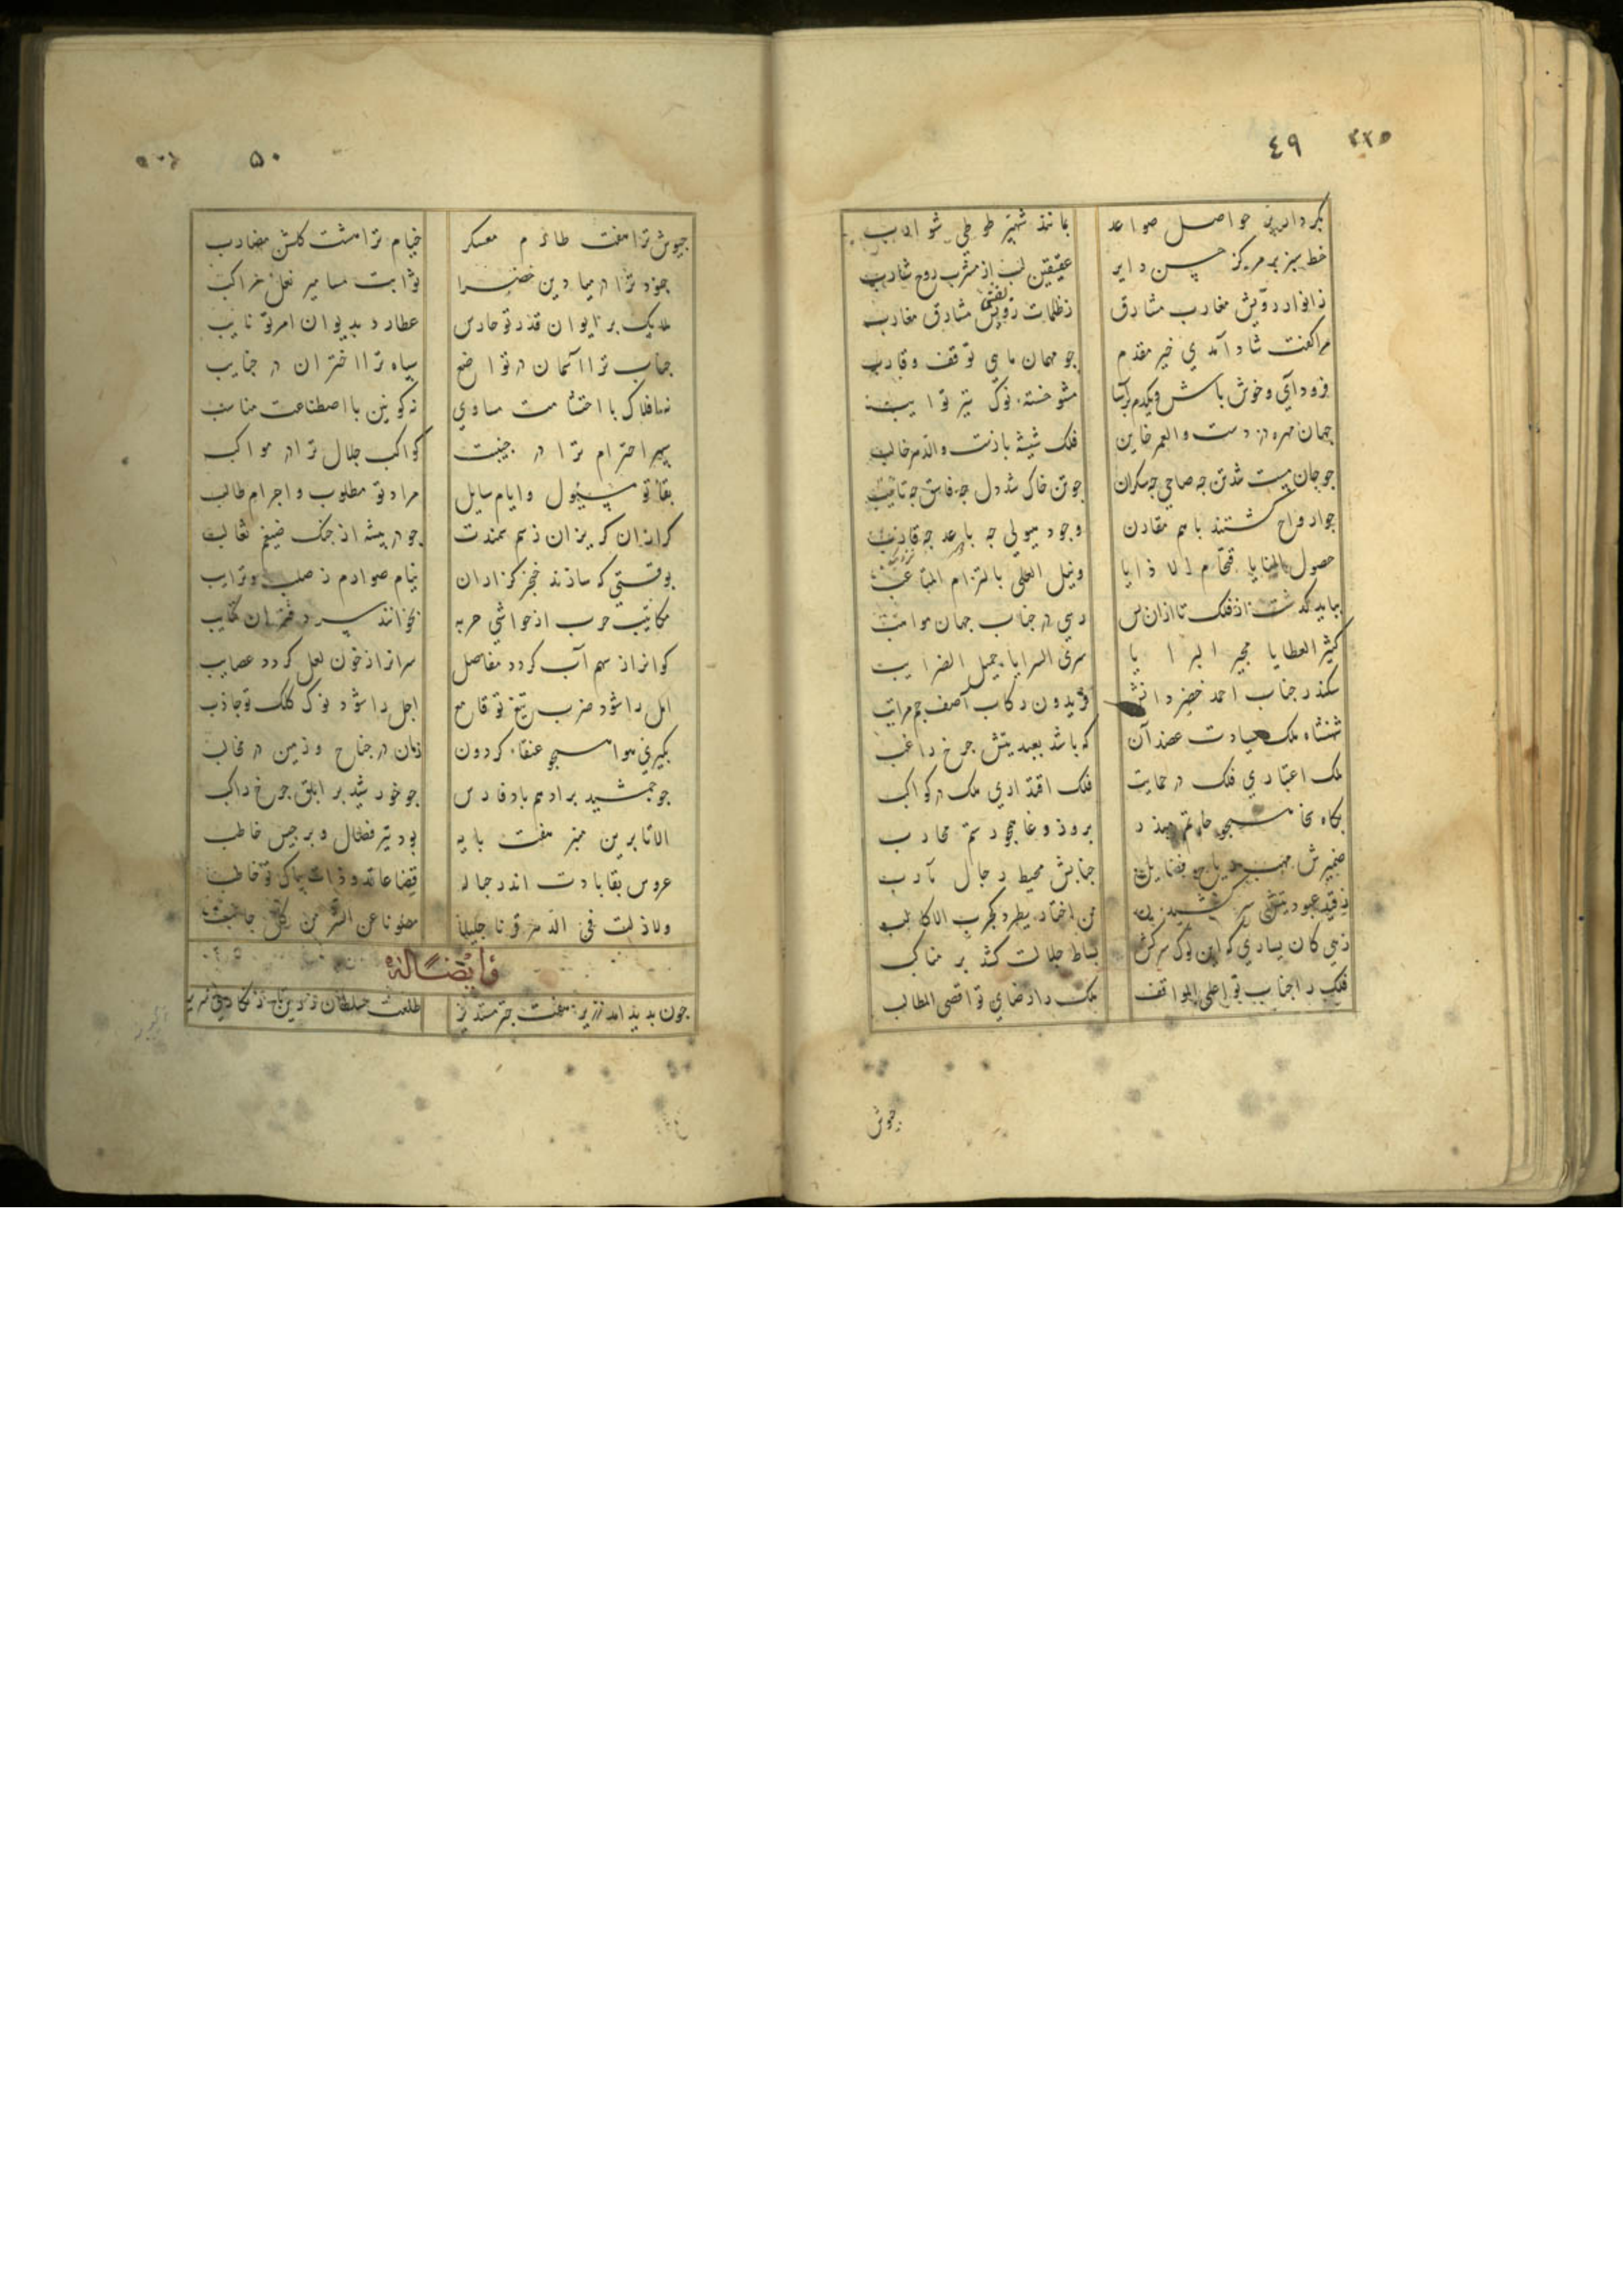 ٤٩
خط سبز بر مرکز حسن دایر عقیقین لب از مشرب روح شارب
ز انوار رویش مغارب مشارق ز ظلمات مشارق مغارب
مرا گفت شاد آمدی خیر مقدم چو مهمان ماهی توقف و قارب
فرود آی و خوش باش مشو خسته نوک تیر نوایب
جهان مهره دزدست والعمر خاین فلک شیشه بازست والدهر خالب
چو جان مست شد تن چه صاحی چه سکران چو تن خاک شد دل چه فاسق چه تایب
چو ارواح گشتند با هم مقارن وجود هیولی چه باعد چه قارب
حصول المنایا ونیل العلی بالتزام المتاعب
بباید گذشت از فلک تا از آن پس رسی در جناب جهان مواهب
کثیر العطایا مجیر البرایا سری السرایا جمیل الضرایب
سکندر جناب احمد خضر دانش فریدون رکاب آصف جم مراتب
شهنشاه ملک سیادت عضد آن که باشد بعبدیتش چرخ راغب
ملک اعتباری فلک در حمایت فلک اقتداری ملک در کواکب
بگاه سخا همچو حاتم بروز وغا همچو رستم محارب
ضمیرش مهب جنابش محیط رجال مآرب
زهی کان یساری که این بوک سرکش بساط جلالت کشد بر مناکب
فلک را جناب تو اعلی المواقف ملک را رضای تو اقصی المطالب
جیوش
۵۰
جیوش ترا هفت طارم معسکر خیام ترا هشت گلشن مضارب
جنود ترا در میادین خضرا ثوابت مسامیر نعل مراکب
ملایک بر ایوان قدر تو حارس عطارد بدیوان امر تو نایب
جناب ترا آسمان در تواضع سپاه ترا اختران در جنایب
نه افلاک با احتشامت مساوی نه کونین با اصطناعت مناسب
سپهر احترام ترا در جنیبت کواکب جلال ترا در مواکب
بقا تو مسئول و ایام سایل مراد تو مطلوب و اجرام طالب
گرازان گریزان ز سم سمندت چو در بیشه از چنگ ضیغم ثعالب
بوقتی که سازند خنجر گزاران نیام صوارم ز صلب و ترایب
مکاتیب حرب از حواشی حربه بخوانند سر دفتران کتایب
گوانرا ز سهم آب گردد مفاصل سرانرا ز خون لعل گردد عصایب
امل را شود ضرب تیغ تو قامع اجل را شود نوک کلک تو جاذب
بگیری هوا همچو عنقاء گردون زمان در جناح و زمین در مخالب
چو جمشید بر ادهم باد فارس چو خورشید بر ابلق چرخ راکب
الا تا برین منبر هفت پایه بود تیر فضال و برجیس خاطب
عروس بقا بادت اندر حباله قضا عاقد و ذات پاک تو خاطب
ولا زلت فی الدهر قرنا جلیلا مصونا عن الشر من کل جانب
وایضا له
چون بدید آمد ازین هفت چتر مستدیر طلعت سلطان زرین تاج